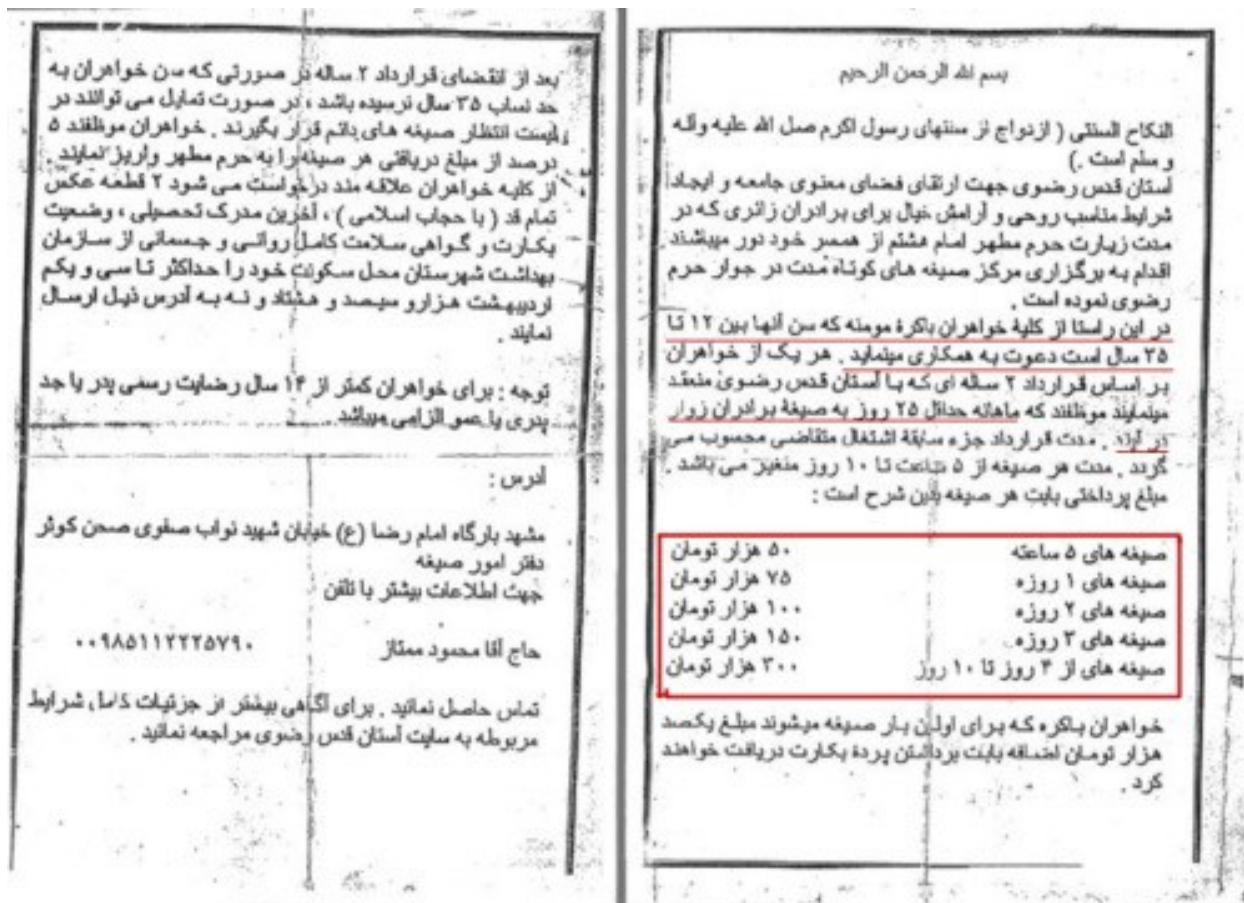 بسم الله الرحمن الرحیم
النکاح السنتی ( ازدواج از سنتهای رسول اکرم صل الله علیه وآله
و سلم است .)
آستان قدس رضوی جهت ارتقای فضای معنوی جامعه و ایجاد
شرایط مناسب روحی و آرامش خیال برای برادران زائری که در
مدت زیارت حرم مطهر امام هشتم از همسر خود دور میباشند
اقدام به برگزاری مرکز صیغه های کوتاه مدت در جوار حرم
رضوی نموده است .
در این راستا از کلیۀ خواهران باکرۀ مومنه که سن آنها بین ۱۲ تا
۳۵ سال است دعوت به همکاری مینماید . هر یک از خواهران
بر اساس قرارداد ۲ ساله ای که با آستان قدس رضوی منعقد
مینمایند موظفند که ماهانه حداقل ۲۵ روز به صیغۀ برادران زوار
در آیند . مدت قرارداد جزء سابقۀ اشتغال متقاضی محسوب می
گردد . مدت هر صیغه از ۵ ساعت تا ۱۰ روز متغیر می باشد .
مبلغ پرداختی بابت هر صیغه بدین شرح است :
صیغه های ۵ ساعته ۵۰ هزار تومان
صیغه های ۱ روزه ۷۵ هزار تومان
صیغه های ۲ روزه ۱۰۰ هزار تومان
صیغه های ۳ روزه ۱۵۰ هزار تومان
صیغه های از ۴ روز تا ۱۰ روز ۳۰۰ هزار تومان
خواهران باکره که برای اولین بار صیغه میشوند مبلغ یکصد
هزار تومان اضافه بابت برداشتن پردۀ بکارت دریافت خواهند
کرد .
بعد از انقضای قرارداد ۲ ساله در صورتی که سن خواهران به
حد نساب ۳۵ سال نرسیده باشد ، در صورت تمایل می توانند در
لیست انتظار صیغه های دائم قرار بگیرند . خواهران موظفند ۵
درصد از مبلغ دریافتی هر صیغه را به حرم مطهر واریز نمایند .
از کلیه خواهران علاقه مند درخواست می شود ۲ قطعه عکس
تمام قد ( با حجاب اسلامی ) ، آخرین مدرک تحصیلی ، وضعیت
بکارت و گواهی سلامت کامل روانی و جسمانی از سازمان
بهداشت شهرستان محل سکونت خود را حداکثر تا سی و یکم
اردیبهشت هزارو سیصد و هشتاد و نه به آدرس ذیل ارسال
نمایند .
توجه : برای خواهران کمتر از ۱۴ سال رضایت رسمی پدر یا جد
پدری یا عمو الزامی میباشد .
آدرس :
جهت اطلاعات بیشتر با تلفن
تماس حاصل نمائید . برای آگاهی بیشتر از جزئیات کامل شرایط
مربوطه به سایت آستان قدس رضوی مراجعه نمائید .